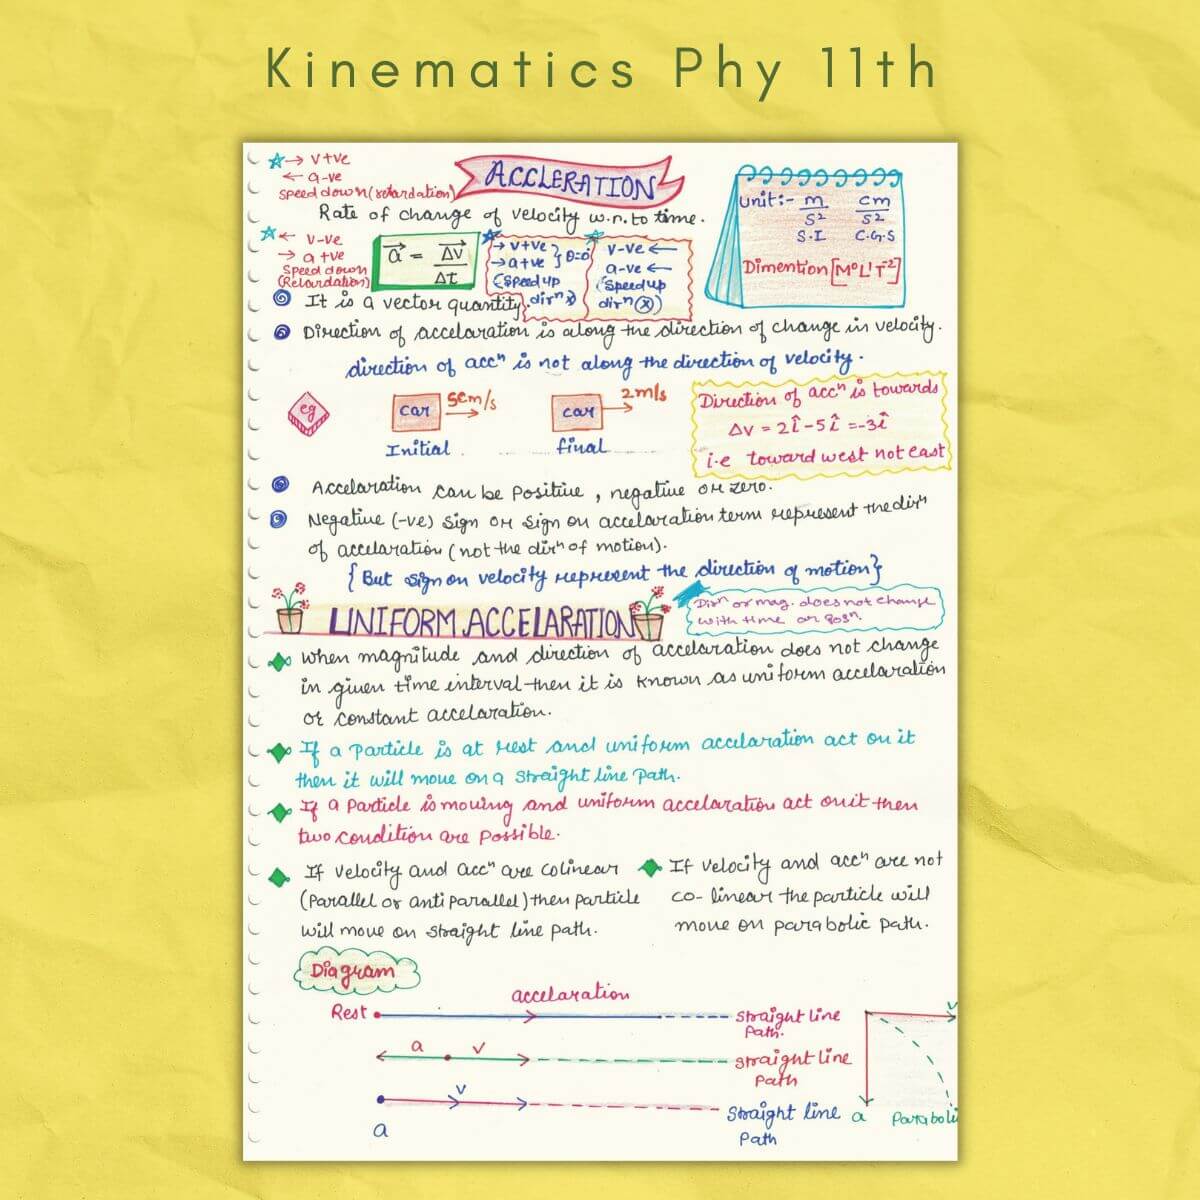 Kinematics Phy 11th
→ v+ve
← a-ve
speed down (retardation)
ACCLERATION
Rate of change of velocity w.r.to time.
← v-ve
→ a+ve
Speed down
(Retardation)
a⃗ = Δv⃗/Δt
→ v+ve
→ a+ve } θ=0°
(speed up
dirⁿ x)
v-ve ←
a-ve ←
(speed up
dirⁿ (x))
unit:- m/s² cm/s²
S.I C.G.S
Dimention [M⁰L¹T⁻²]
It is a vector quantity.
Direction of accelaration is along the direction of change in velocity.
direction of accⁿ is not along the direction of velocity.
eg
car 5cm/s
Initial
car 2m/s
final
Direction of accⁿ is towards
Δv = 2î-5î =-3î
i.e toward west not east
Accelaration can be positive, negative or zero.
Negative (-ve) sign or sign on accelaration term represent the dirⁿ
of accelaration (not the dirⁿ of motion).
{But sign on velocity represent the direction of motion}
UNIFORM ACCELARATION
Dirⁿ or mag. does not change
with time or posⁿ.
When magnitude and direction of accelaration does not change
in given time interval then it is known as uniform accelaration
or constant accelaration.
If a particle is at rest and uniform accelaration act on it
then it will move on a straight line path.
If a particle is moving and uniform accelaration act on it then
two condition are possible.
If velocity and accⁿ are colinear
(parallel or anti parallel) then particle
will move on straight line path.
If velocity and accⁿ are not
co-linear the particle will
move on parabolic path.
Diagram
accelaration
Rest
straight line
path.
a v
straight line
path
v
a
straight line
path
v
a
parabolic